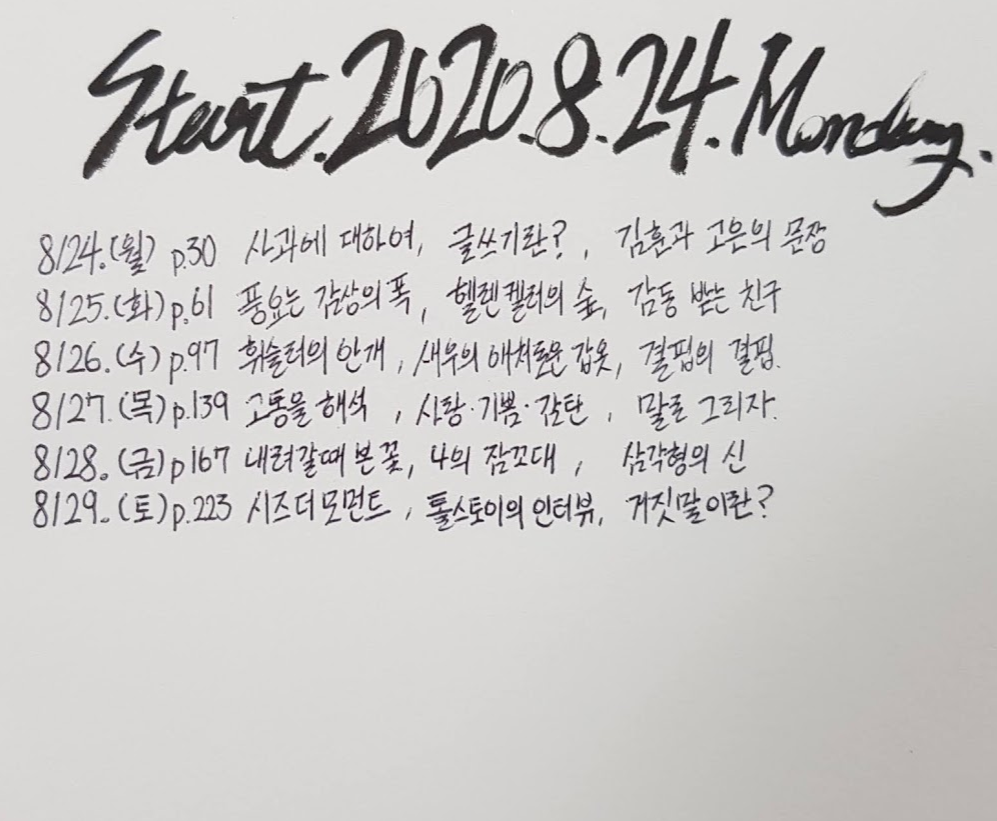 Start. 2020. 8. 24. Monday.
8/24. (월) p.30 사과에 대하여, 글쓰기란?, 김훈과 고은의 문장
8/25. (화) p.61 풍요는 감상의 폭, 헬렌켈러의 숲, 감동 받는 친구
8/26. (수) p.97 휘슬러의 안개, 새우의 애처로운 갑옷, 결핍의 결핍.
8/27. (목) p.139 고통을 해석, 사랑·기쁨·감탄, 말로 그리자.
8/28. (금) p167 내려갈때 본 꽃, 4의 잠꼬대, 삼각형의 신
8/29. (토) p.223 시즈더모먼트, 톨스토이의 인터뷰, 거짓말이란?